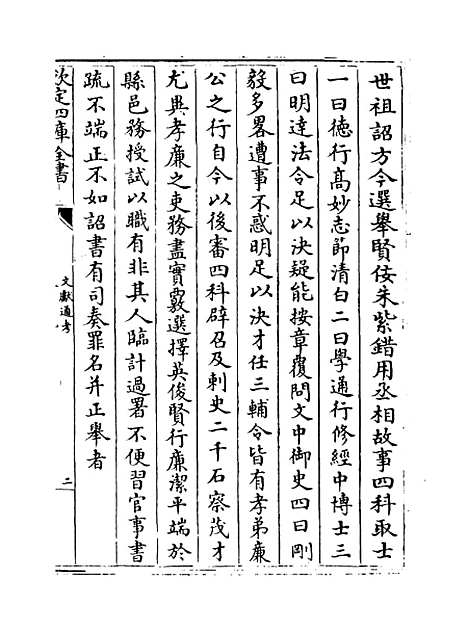 世祖詔方今選舉賢佞朱紫錯用丞相故事四科取士
一曰徳行髙妙志節清白二曰學通行修經中博士三
曰明達法令足以決疑能按章覆問文中御史四曰剛
毅多畧遭事不惑明足以決才任三輔令皆有孝弟亷
公之行自今以後審四科辟召及刺史二千石察茂才
尤異孝亷之吏務盡實覈選擇英俊賢行亷潔平端於
縣邑務授試以職有非其人臨計過署不便習官事書
疏不端正不如詔書有司奏罪名并正舉者
欽定四庫全書
文獻通考
二